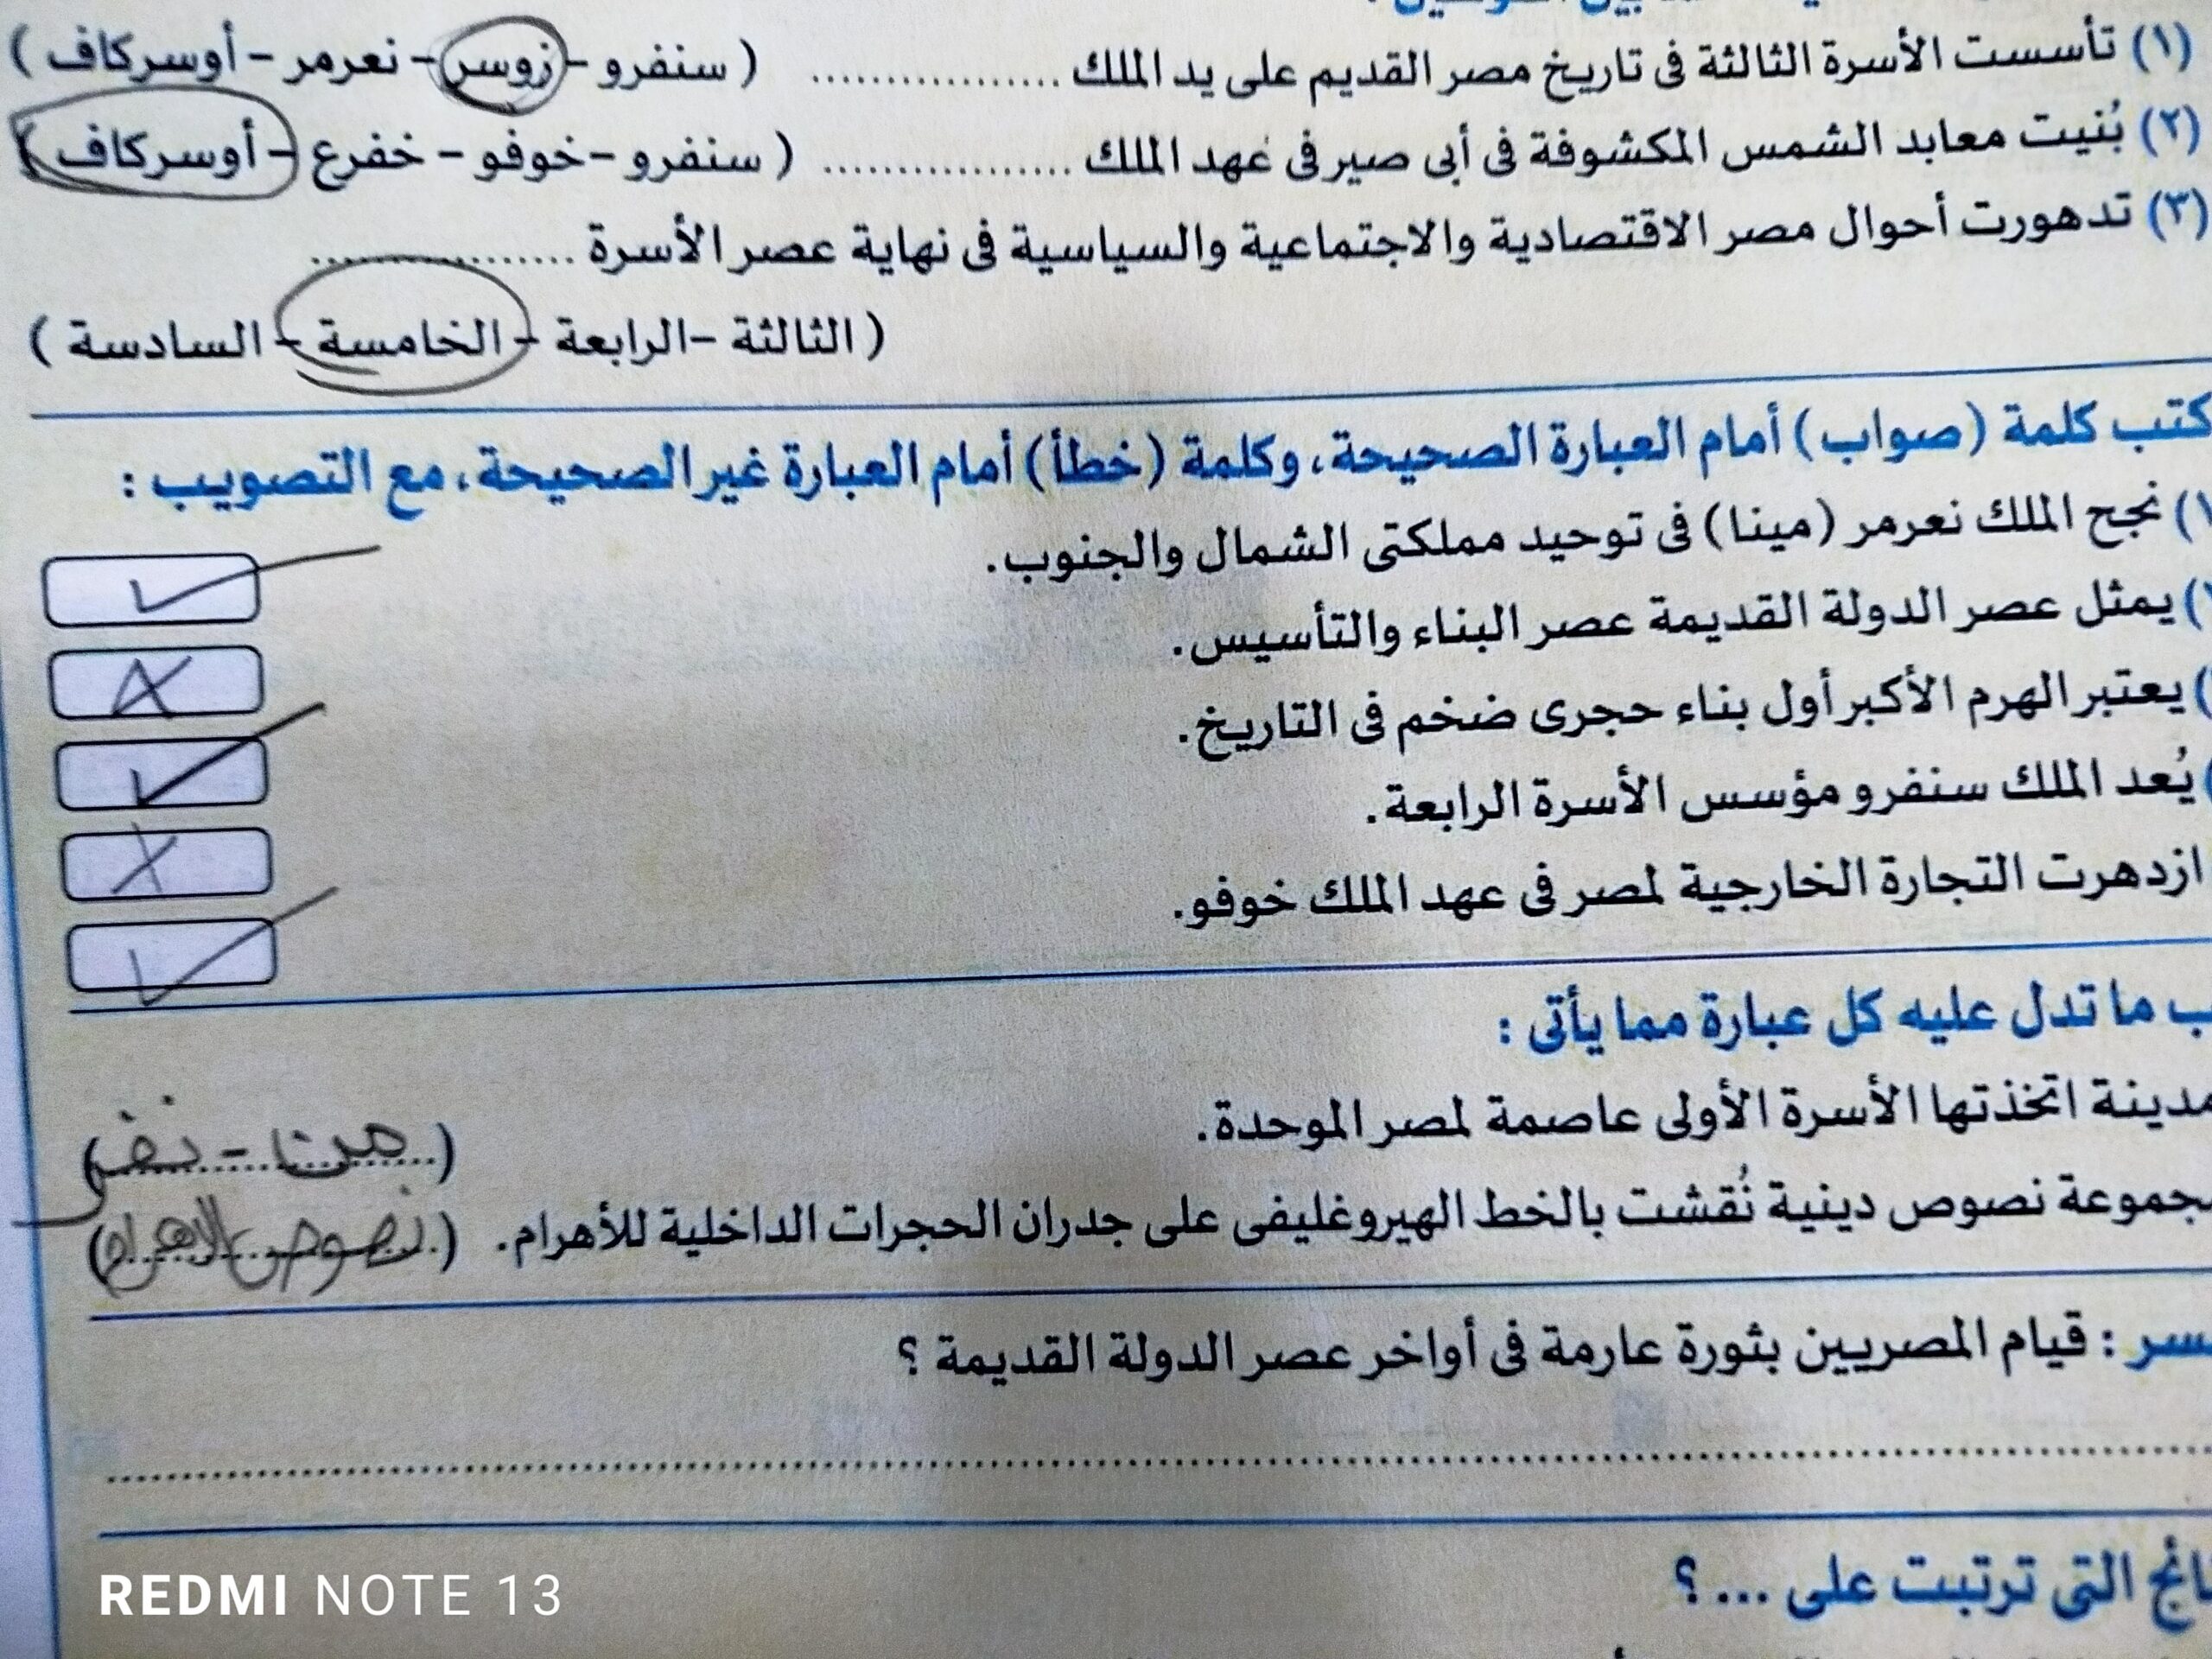 (١) تأسست الأسرة الثالثة فى تاريخ مصر القديم على يد الملك .................. ( سنفرو - زوسر - نعرمر - أوسركاف )
(٢) بُنيت معابد الشمس المكشوفة فى أبى صير فى عهد الملك .................. ( سنفرو - خوفو - خفرع - أوسركاف )
(٣) تدهورت أحوال مصر الاقتصادية والاجتماعية والسياسية فى نهاية عصر الأسرة ..................
( الثالثة - الرابعة - الخامسة - السادسة )
كتب كلمة (صواب) أمام العبارة الصحيحة، وكلمة (خطأ) أمام العبارة غير الصحيحة، مع التصويب :
) نجح الملك نعرمر (مينا) فى توحيد مملكتى الشمال والجنوب. ✓
) يمثل عصر الدولة القديمة عصر البناء والتأسيس. X
) يعتبر الهرم الأكبر أول بناء حجرى ضخم فى التاريخ. ✓
) يُعد الملك سنفرو مؤسس الأسرة الرابعة. X
ازدهرت التجارة الخارجية لمصر فى عهد الملك خوفو. ✓
ما تدل عليه كل عبارة مما يأتى :
مدينة اتخذتها الأسرة الأولى عاصمة لمصر الموحدة. (من - نفر)
جموعة نصوص دينية نُقشت بالخط الهيروغليفى على جدران الحجرات الداخلية للأهرام. (نصوص الاهرام)
سر : قيام المصريين بثورة عارمة فى أواخر عصر الدولة القديمة ؟
ائج التى ترتبت على ... ؟
REDMI NOTE 13